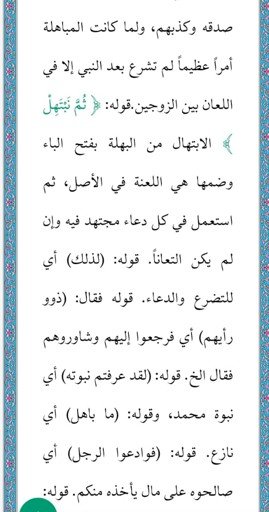 صدقه وكذبهم، ولما كانت المباهلة
أمراً عظيماً لم تشرع بعد النبي إلا في
اللعان بين الزوجين.قوله: ﴿ ثُمَّ نَبْتَهِلْ
﴾ الابتهال من البهلة بفتح الباء
وضمها هي اللعنة في الأصل، ثم
استعمل في كل دعاء مجتهد فيه وإن
لم يكن التعاناً. قوله: (لذلك) أي
للتضرع والدعاء. قوله فقال: (ذوو
رأيهم) أي فرجعوا إليهم وشاوروهم
فقال الخ. قوله: (لقد عرفتم نبوته) أي
نبوة محمد، وقوله: (ما باهل) أي
نازع. قوله: (فوادعوا الرجل) أي
صالحوه على مال يأخذه منكم. قوله: